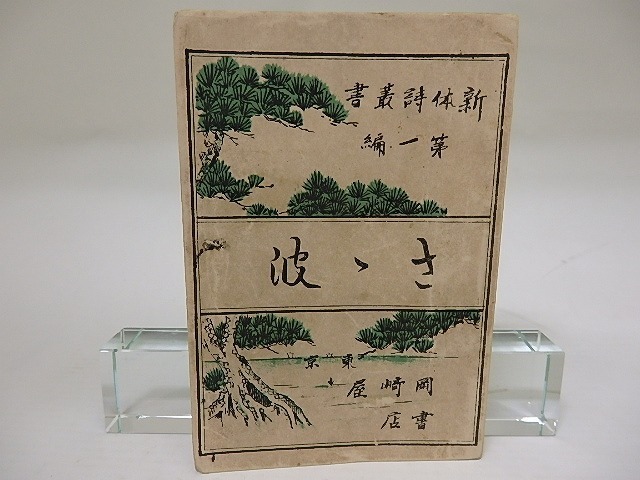 新体詩叢書
第一編
さゝ波
東京
岡崎屋
書店